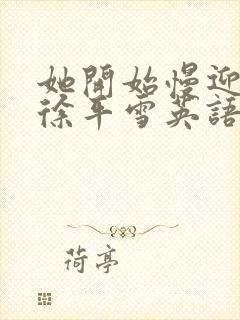 她開始慢迎
徐平雪英語
荷亭